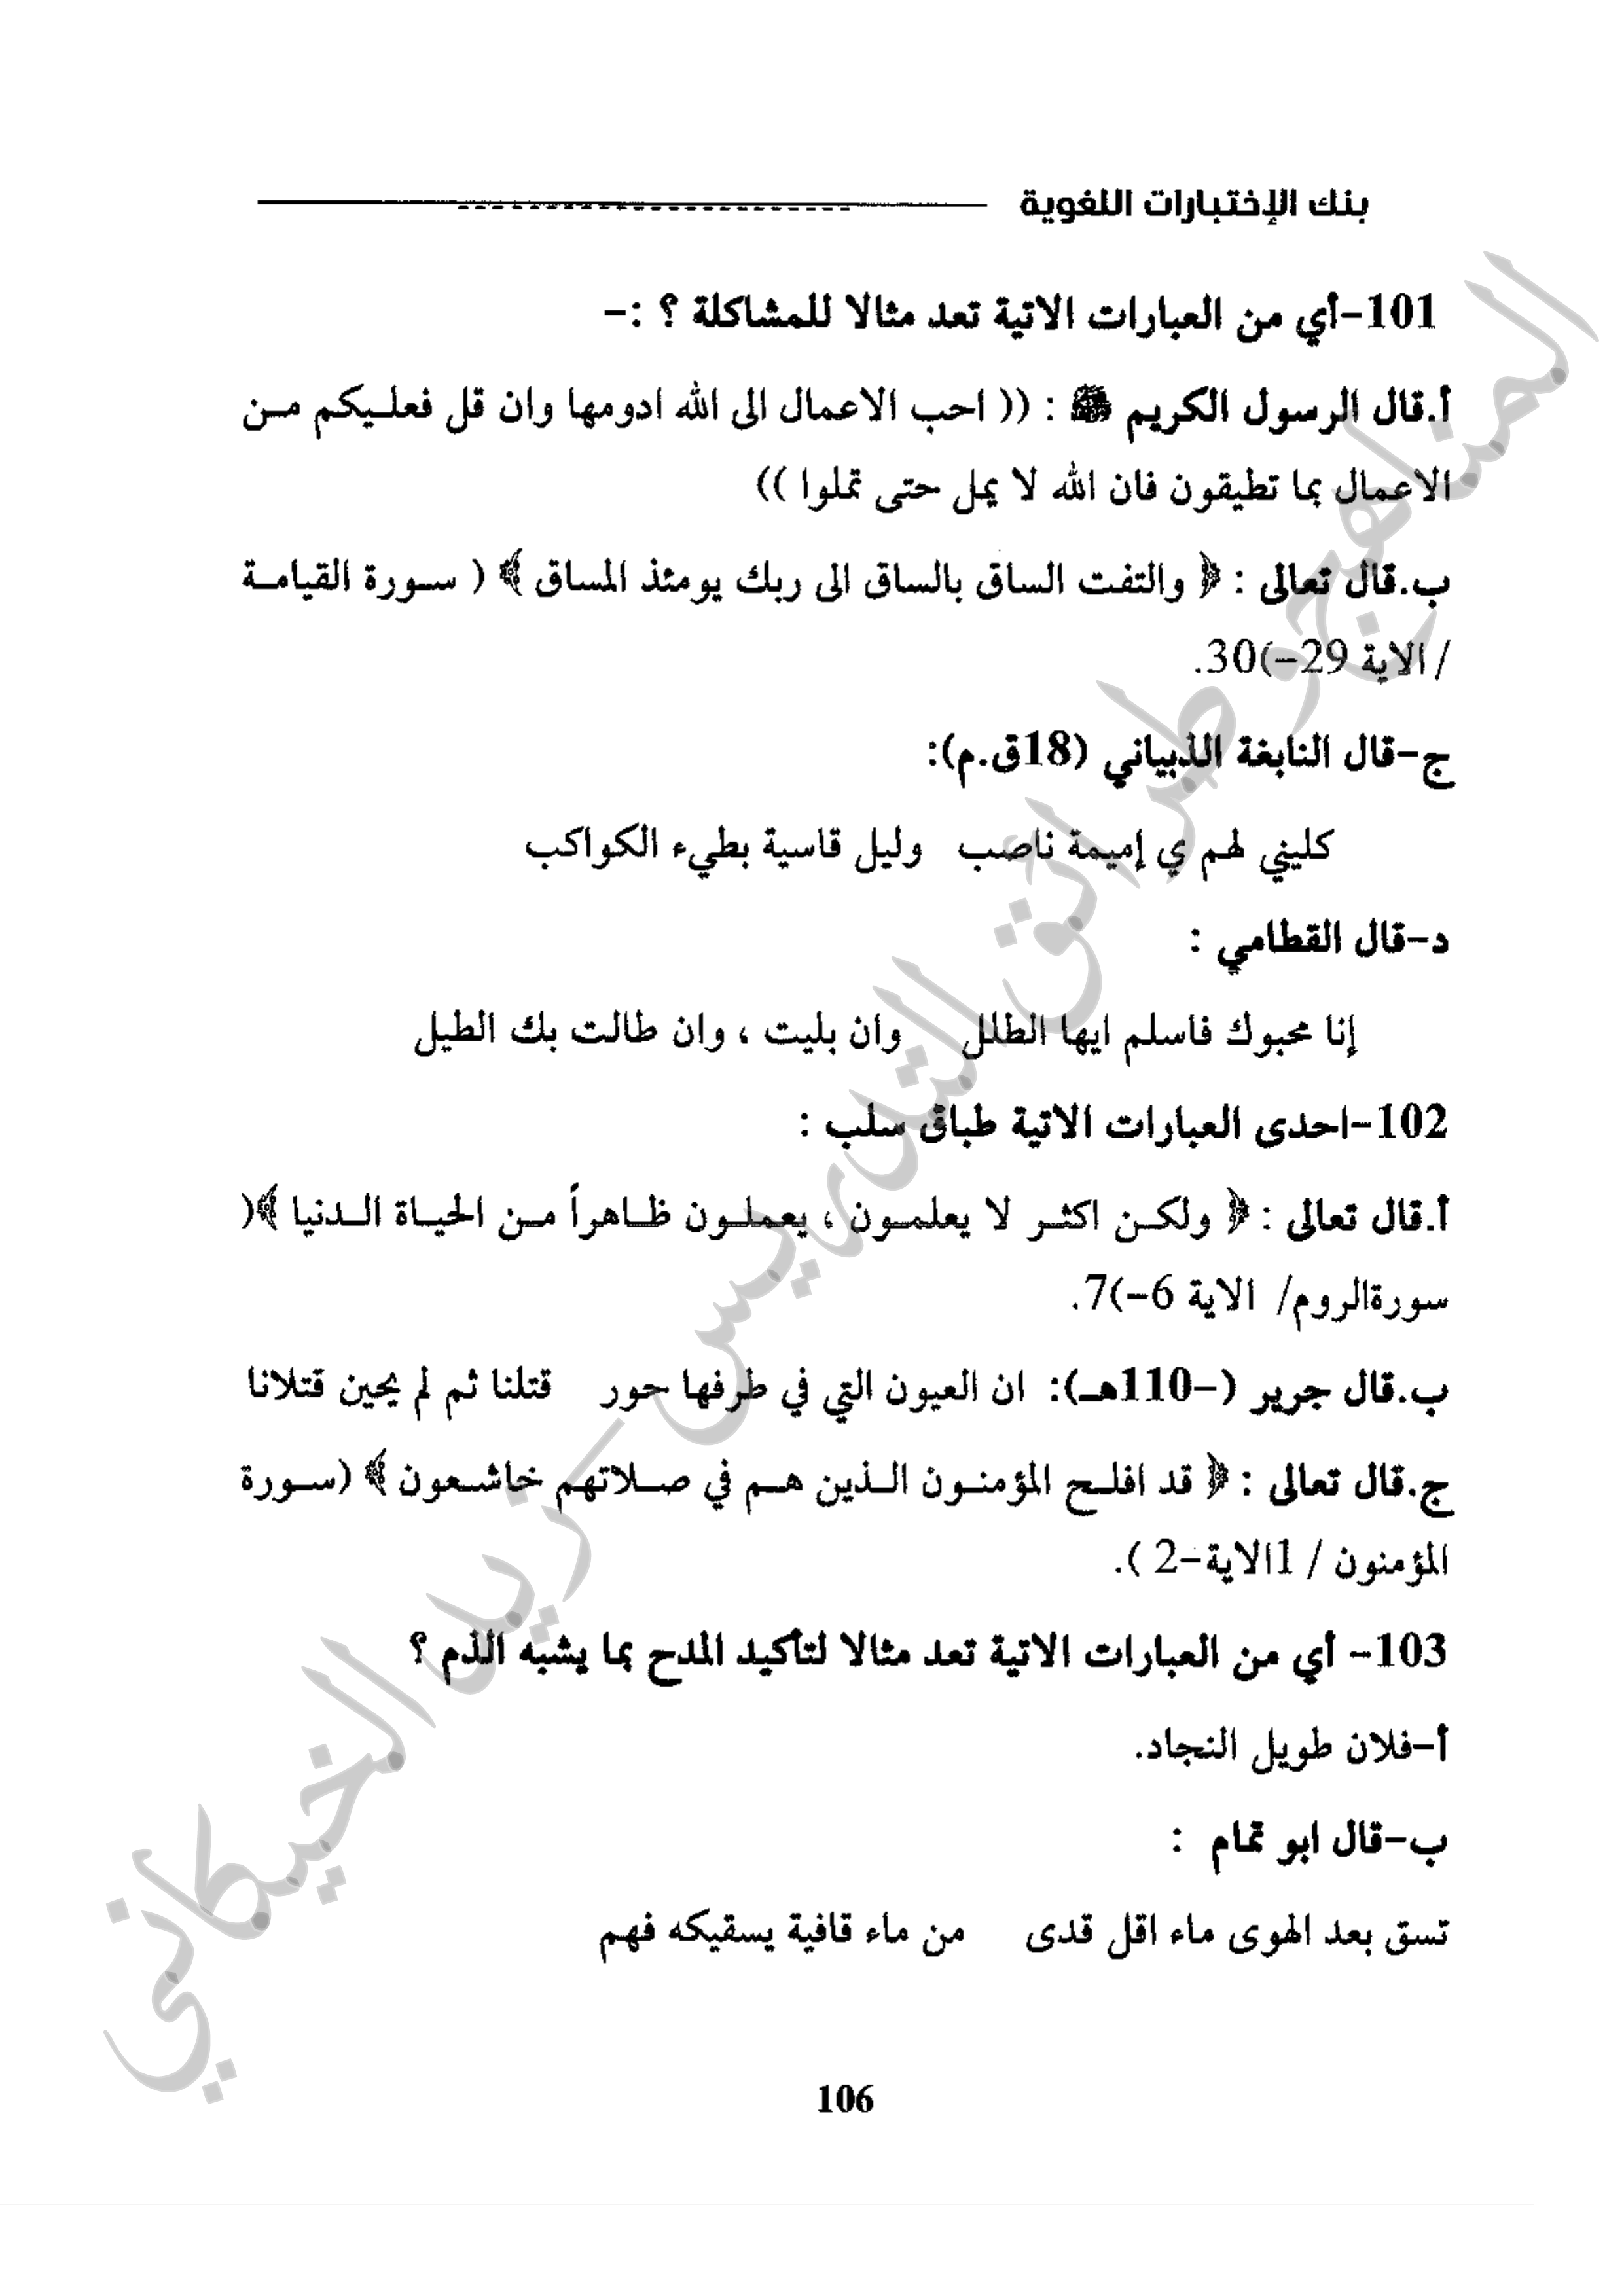 بنك الإختبارات اللغوية
101-أي من العبارات الاتية تعد مثالا للمشاكلة ؟ :-
أ.قال الرسول الكريم ﷺ : (( احب الاعمال الى الله ادومها وان قل فعلـيكم مـن
الاعمال بما تطيقون فان الله لا يمل حتى تملوا ))
ب.قال تعالى : ﴿ والتفت الساق بالساق الى ربك يومئذ المساق ﴾ ( سـورة القيامـة
/ الاية 29-)30.
ج-قال النابغة الذبياني (18ق.م):
كليني لهم ي إميمة ناصب وليل قاسية بطيء الكواكب
د-قال القطامي :
إنا محبوك فاسلم ايها الطلل وان بليت ، وان طالت بك الطيل
102-احدى العبارات الاتية طباق سلب :
أ.قال تعالى : ﴿ ولكـن اكثـر لا يعلمـون ، يعملـون ظـاهراً مـن الحيـاة الـدنيا ﴾(
سورةالروم/ الاية 6-)7.
ب.قال جرير (-110هـ): ان العيون التي في طرفها حور قتلنا ثم لم يحين قتلانا
ج.قال تعالى : ﴿ قد افلـح المؤمنـون الـذين هـم في صـلاتهم خاشـعون ﴾ (سـورة
المؤمنون / 1الاية-2 ).
103- أي من العبارات الاتية تعد مثالا لتأكيد المدح بما يشبه الذم ؟
أ-فلان طويل النجاد.
ب-قال ابو تمام :
تسق بعد الهوى ماء اقل قدى من ماء قافية يسقيكه فهم
106
المناهج وطرائق التدريس - زيد الخيكاني